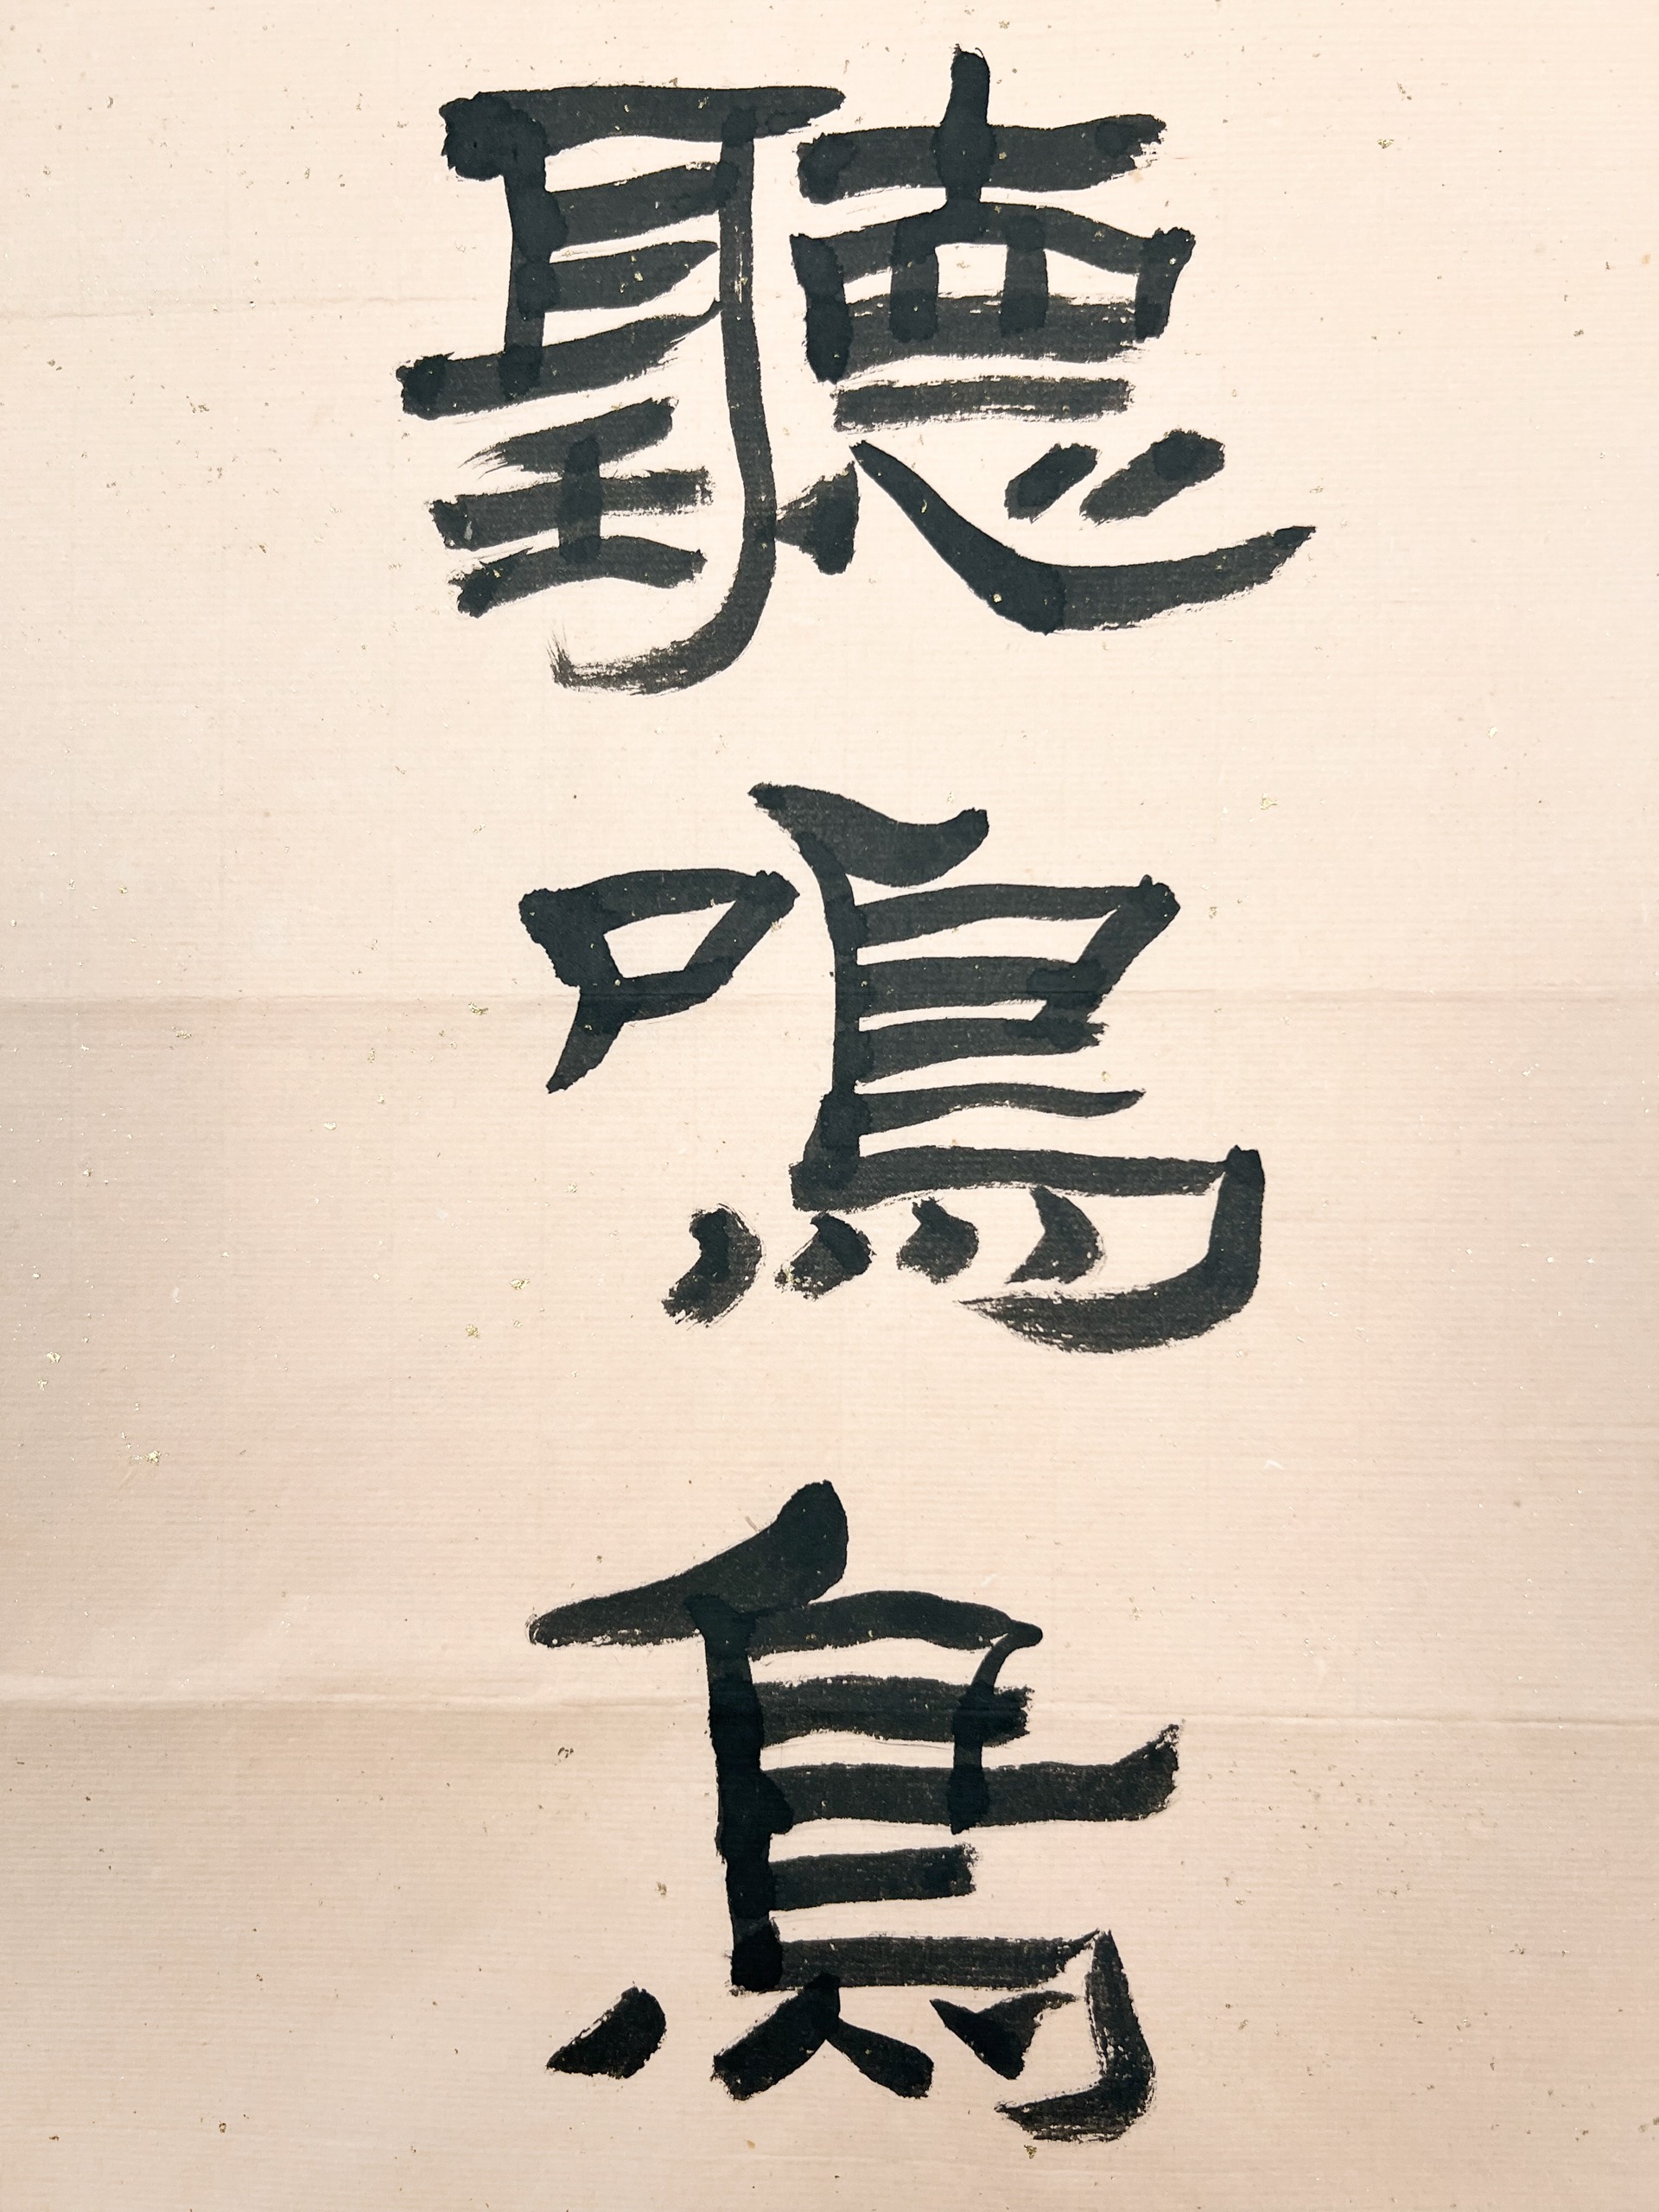 聽鳴鳥